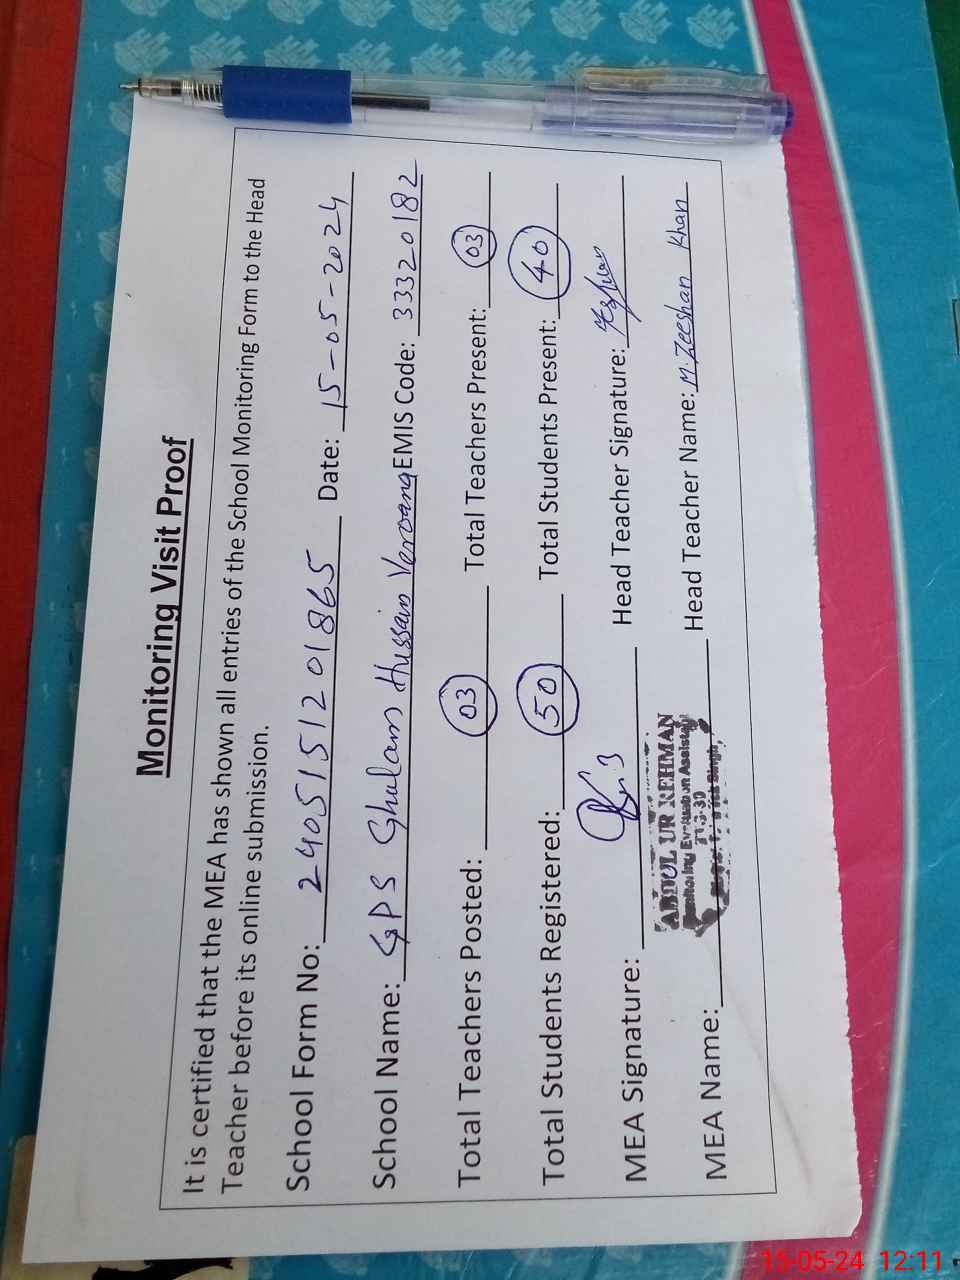 Monitoring Visit Proof
It is certified that the MEA has shown all entries of the School Monitoring Form to the Head
Teacher before its online submission.
School Form No: 240515120 1865 Date: 15-05-2024
School Name: GPS Ghulam Hussain EMIS Code: 33320182
Total Teachers Posted: 03 Total Teachers Present: 03
Total Students Registered: 50 Total Students Present: 40
MEA Signature: Head Teacher Signature:
ABDUL UR REHMAN
Monitoring Evaluation Assistant
MEA Name: Head Teacher Name: M. Zeeshan Khan
15-05-24 12:11